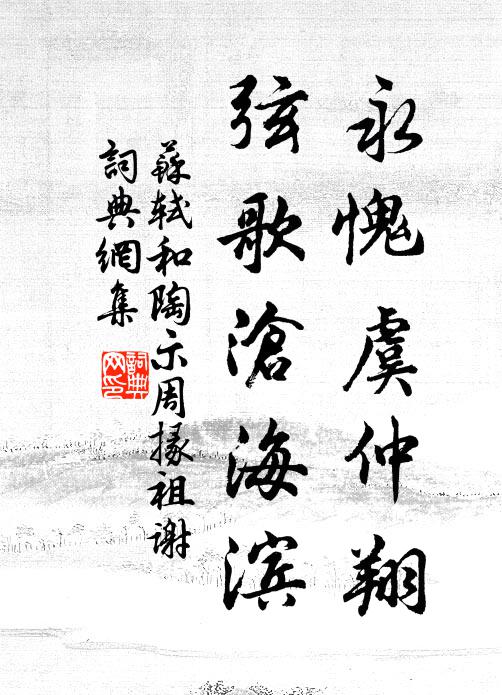 永愧虞仲翔
弦歌滄海滨
蘇軾和陶示周掾祖謝
詞典網集
詞典網印